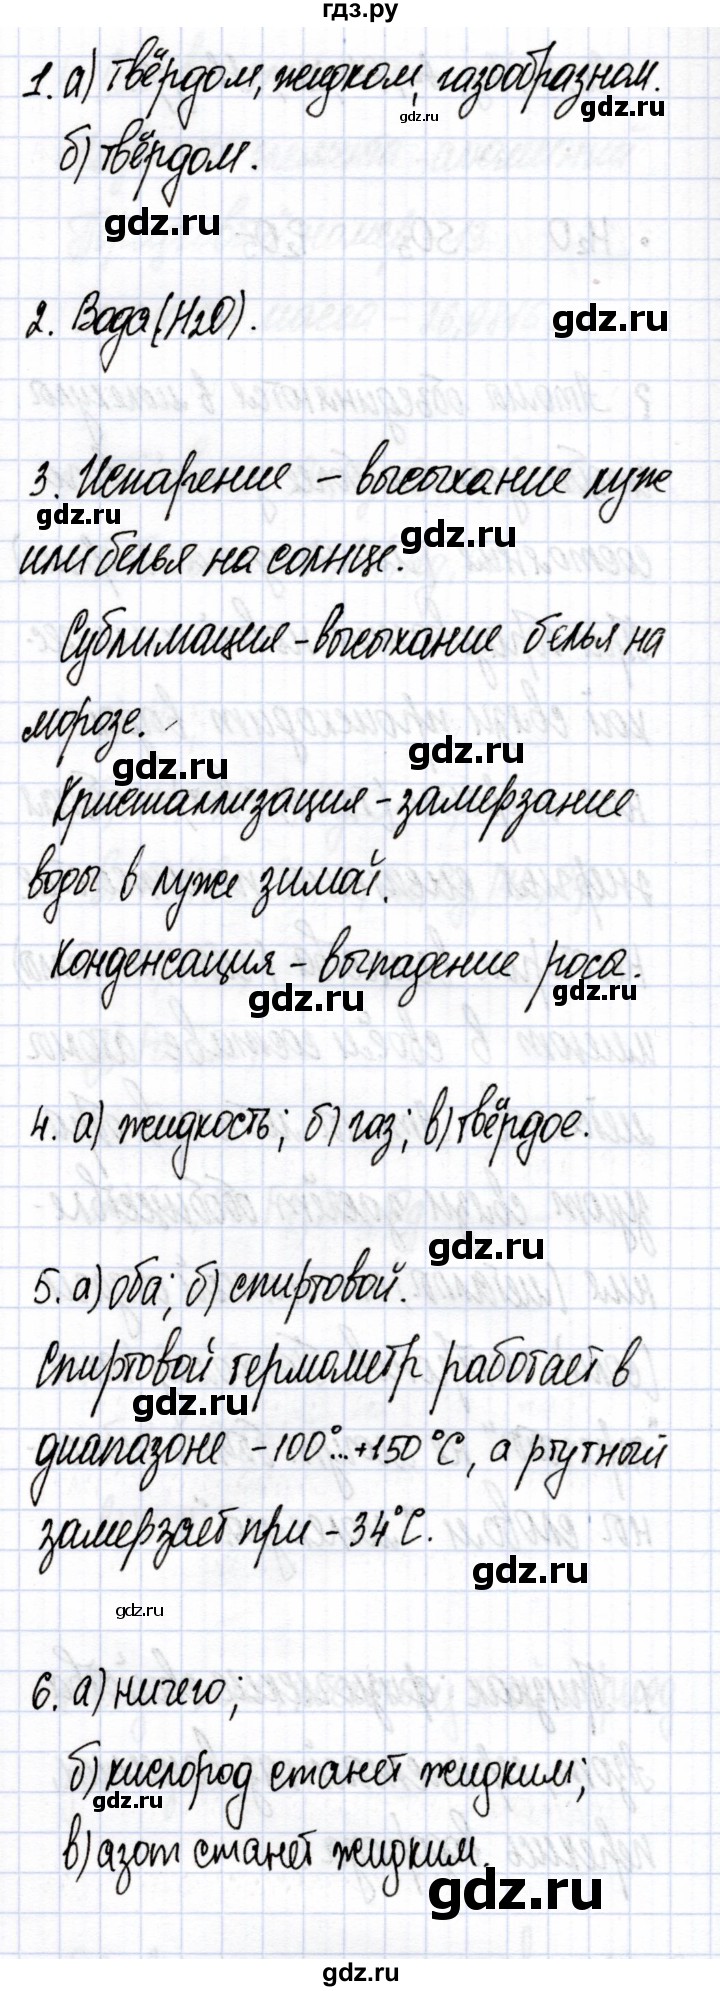 гдз.ру
1. а) твёрдом, жидком, газообразном.
gdz.ru
gdz.ru
б) твёрдом.
gdz.ru
2. Вода (H2O).
gdz.ru
3. Испарение – высыхание луже
gdz.ru
gdz.ru
или белья на солнце.
Сублимация – высыхание белья на
морозе.
gdz.ru
gdz.ru
Кристаллизация – замерзание
воды в луже зимой.
Конденсация – выпадение росы.
gdz.ru
gdz.ru
4. а) жидкость; б) газ; в) твёрдое.
gdz.ru
5. а) оба; б) спиртовой.
Спиртовой термометр работает в
gdz.ru
диапазоне -100°...+150°C, а ртутный
замерзает при -34°C.
gdz.ru
gdz.ru
6. а) ничего;
б) кислород станет жидким;
gdz.ru
в) азот станет жидким.
gdz.ru
gdz.ru